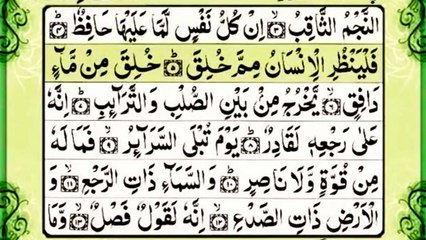 النَّجْمُ الثَّاقِبُ ﴿۳﴾ اِنْ كُلُّ نَفْسٍ لَّمَّا عَلَيْهَا حَافِظٌ ﴿۴﴾
فَلْيَنْظُرِ الْاِنْسَانُ مِمَّ خُلِقَ ﴿۵﴾ خُلِقَ مِنْ مَّآءٍ
دَافِقٍ ﴿۶﴾ يَّخْرُجُ مِنْۢ بَيْنِ الصُّلْبِ وَالتَّرَآئِبِ ﴿۷﴾ اِنَّهٗ
عَلٰى رَجْعِهٖ لَقَادِرٌ ﴿۸﴾ يَوْمَ تُبْلَى السَّرَآئِرُ ﴿۹﴾ فَمَا لَهٗ
مِنْ قُوَّةٍ وَّلَا نَاصِرٍ ﴿۱۰﴾ وَالسَّمَآءِ ذَاتِ الرَّجْعِ ﴿۱۱﴾ وَ
الْاَرْضِ ذَاتِ الصَّدْعِ ﴿۱۲﴾ اِنَّهٗ لَقَوْلٌ فَصْلٌ ﴿۱۳﴾ وَّمَا